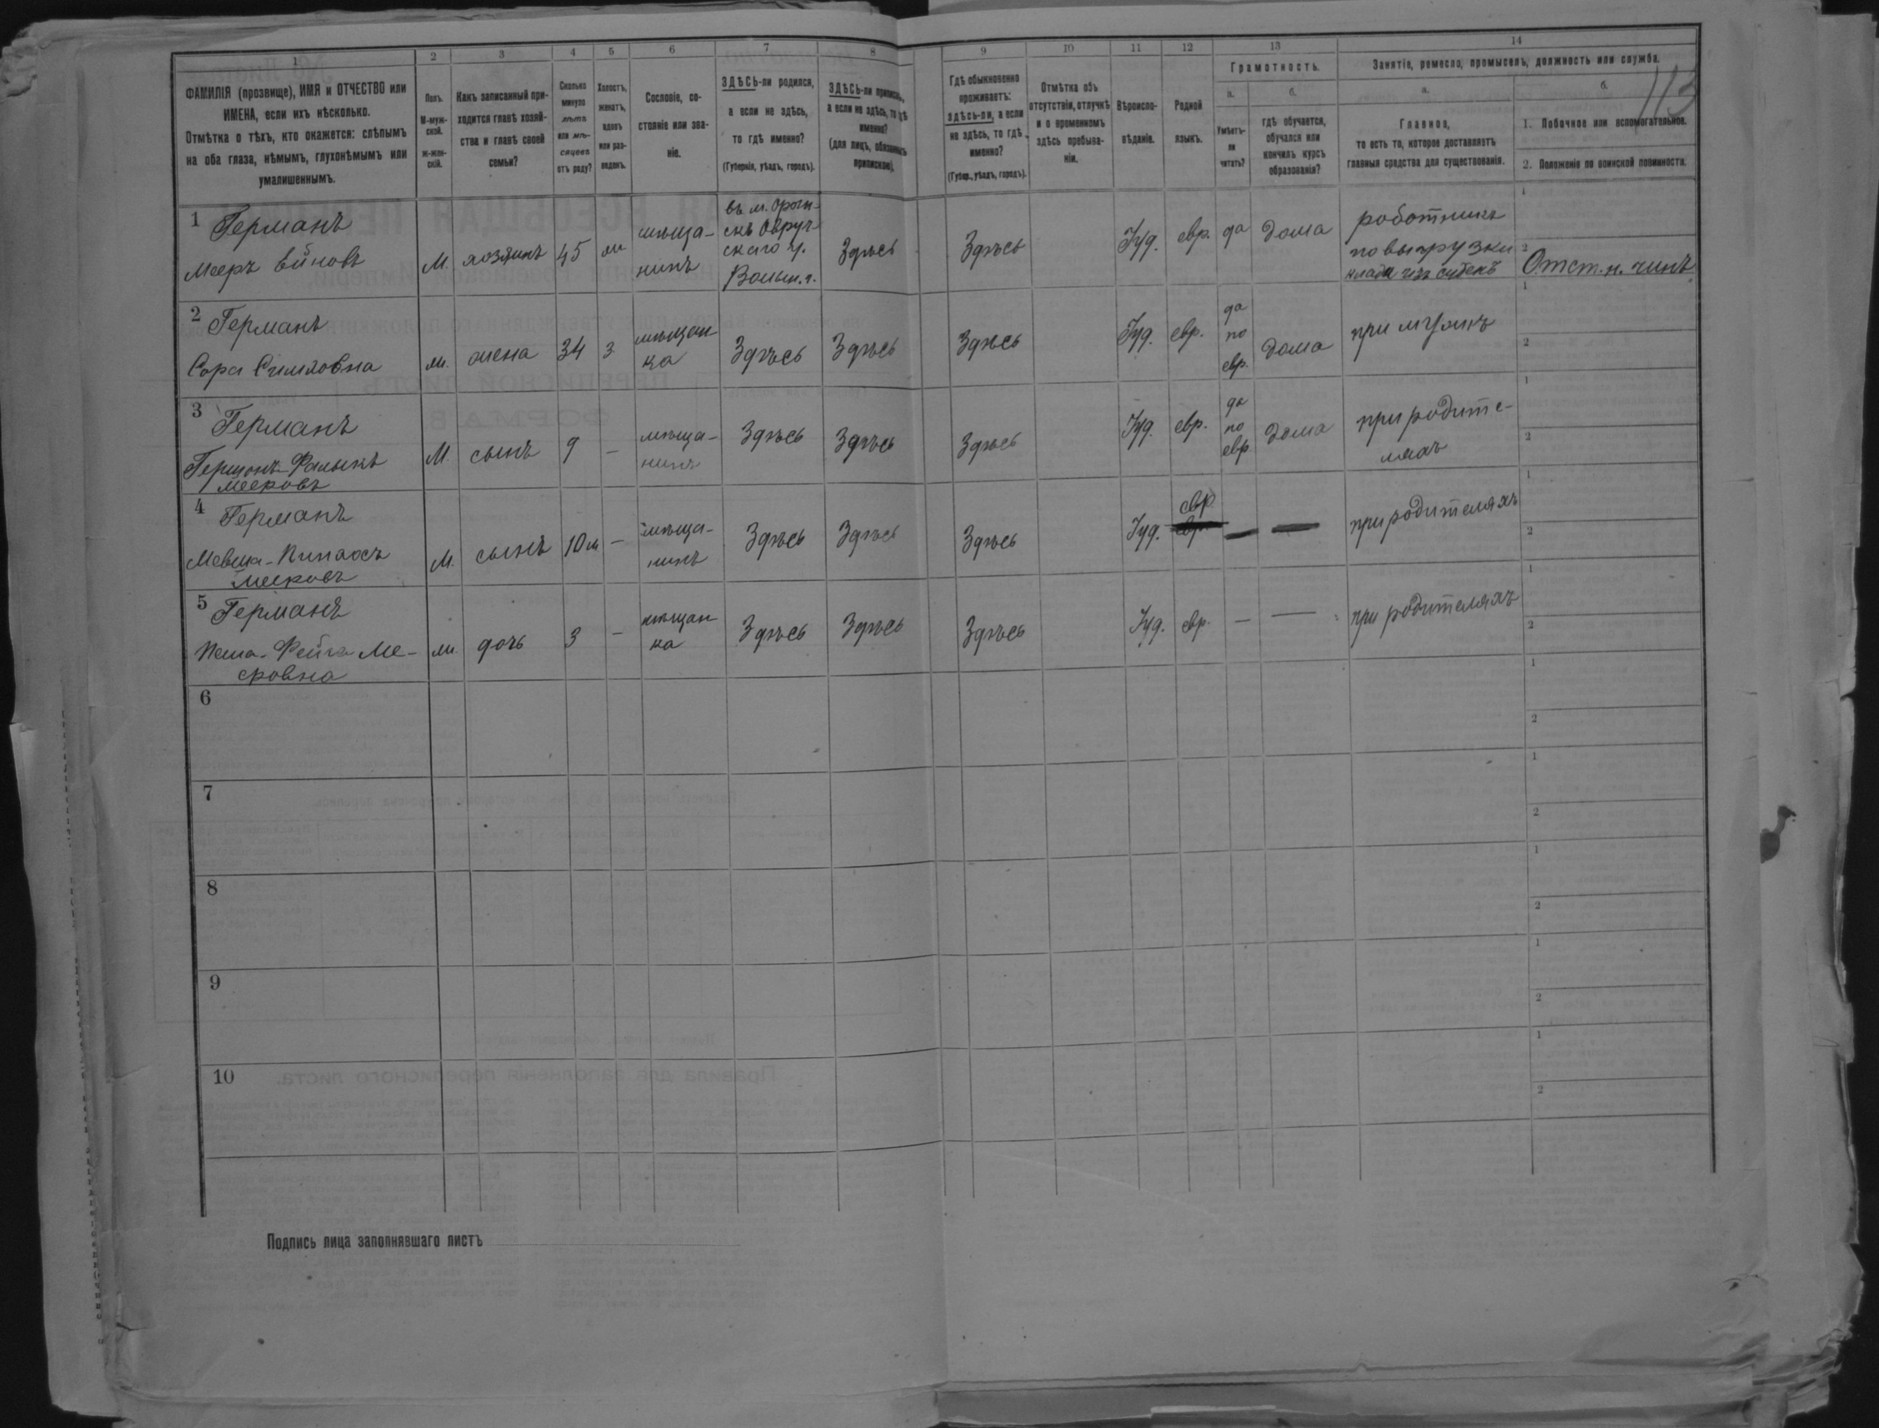 113
1 2 3 4 5 6 7 8 9 10 11 12 13 14
ФАМИЛІЯ (прозвище), ИМЯ и ОТЧЕСТВО или
ИМЕНА, если ихъ нѣсколько.
Отмѣтка о тѣхъ, кто окажется: слѣпымъ
на оба глаза, нѣмымъ, глухонѣмымъ или
умалишеннымъ.
Полъ.
М-муж-
ской.
ж-жен-
скій.
Какъ записанный при-
ходится главѣ хозяй-
ства и главѣ своей
семьи?
Сколько
минуло
лѣтъ
или мѣ-
сяцевъ
отъ роду?
Холостъ,
женатъ,
вдовъ
или раз-
веденъ.
Сословіе, со-
стояніе или зва-
ніе.
ЗДѢСЬ-ли родился,
а если не здѣсь,
то гдѣ именно?
(Губернія, уѣздъ, городъ).
ЗДѢСЬ-ли приписанъ,
а если не здѣсь, то гдѣ
именно?
(для лицъ, обязанныхъ
припискою).
Гдѣ обыкновенно
проживаетъ:
здѣсь-ли, а если
не здѣсь, то гдѣ
именно?
(Губер., уѣздъ, городъ).
Отмѣтка объ
отсутствіи, отлучкѣ
и о временномъ
здѣсь пребыва-
ніи.
Вѣроиспо-
вѣданіе.
Родной
языкъ.
Грамотность.
а.
Умѣетъ-
ли
читать?
б.
гдѣ обучается,
обучался или
кончилъ курсъ
образованія?
Занятіе, ремесло, промыселъ, должность или служба.
а.
Главное,
то есть то, которое доставляетъ
главныя средства для существованія.
б.
1. Побочное или вспомогательное.
2. Положеніе по воинской повинности.
1 Германъ
Мееръ Ейновъ
М. хозяинъ 45 ж
мѣща-
нинъ
въ м.
Овруч-
скаго у.
Волын. г.
Здѣсь Здѣсь Іуд. евр. да дома
работникъ
по выгрузки
клади изъ
1
2 Отст. н. чинъ
2 Германъ
Сора
ж. жена 34 з
мѣщан
ка
Здѣсь Здѣсь Здѣсь Іуд. евр.
да
по
евр.
дома при мужѣ
1
2
3 Германъ
Мееровъ
М сынъ 9 —
мѣща-
нинъ
Здѣсь Здѣсь Здѣсь Іуд. евр.
да
по
евр
дома
при родите-
ляхъ
1
2
4 Германъ
Пинхосъ
Мееровъ
М. сынъ 10 м —
мѣща-
нинъ
Здѣсь Здѣсь Здѣсь Іуд. евр. — — при родителяхъ
1
2
5 Германъ
Фейга Ме-
еровна
ж дочь 3 —
мѣщан
ка
Здѣсь Здѣсь Здѣсь Іуд. евр. — — при родителяхъ
1
2
6
1
2
7
1
2
8
1
2
9
1
2
10
1
2
Подпись лица заполнявшаго листъ